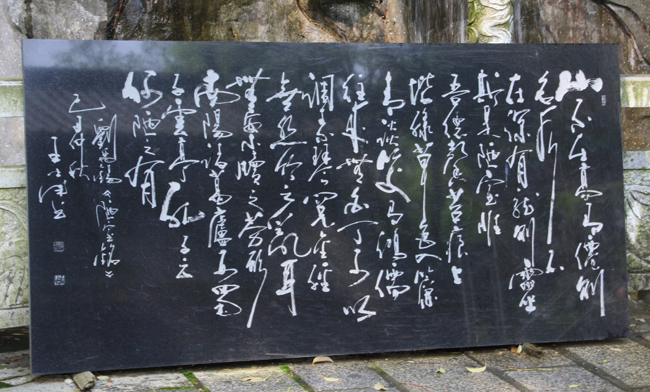 山不在高有僊則
名水不
在深有龍則靈
斯是陋室唯
吾德馨苔痕上
階綠草色入簾
青談笑有鴻儒
往來無白丁可以
調素琴閱金經
無絲竹之亂耳
無案牘之勞形
南陽諸葛廬西蜀
子雲亭孔子云
何陋之有
劉禹錫《陋室銘》